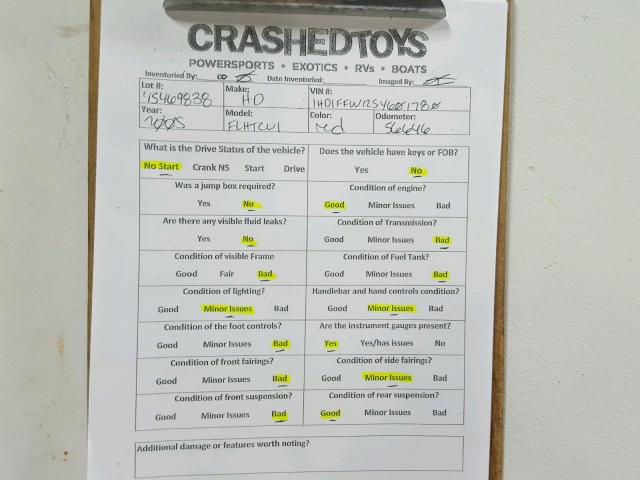 CRASHEDTOYS
POWERSPORTS • EXOTICS • RVs • BOATS
Inventoried By: Date Inventoried: Imaged By:
Lot #: 45469838 Make: HD VIN #:
Year: 2005 Model: FLHTCUI Color: red Odometer: 56646
What is the Drive Status of the vehicle? Does the vehicle have keys or FOB?
No Start Crank NS Start Drive Yes No
Was a jump box required? Condition of engine?
Yes No Good Minor Issues Bad
Are there any visible fluid leaks? Condition of Transmission?
Yes No Good Minor Issues Bad
Condition of visible Frame Condition of Fuel Tank?
Good Fair Bad Good Minor Issues Bad
Condition of lighting? Handlebar and hand controls condition?
Good Minor Issues Bad Good Minor Issues Bad
Condition of the foot controls? Are the instrument gauges present?
Good Minor Issues Bad Yes Yes/has issues No
Condition of front fairings? Condition of side fairings?
Good Minor Issues Bad Good Minor Issues Bad
Condition of front suspension? Condition of rear suspension?
Good Minor Issues Bad Good Minor Issues Bad
Additional damage or features worth noting?